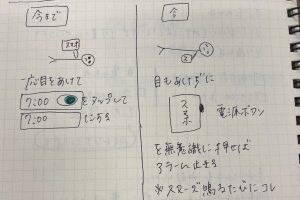 今まで
スマホ
一応目をあけて
7:00 をタップして
7:00 にする
今
ス
目もあけずに
スマホ
電源ボタン
を無意識に押せば
アラーム止まる
※スヌーズ鳴るたびにコレ